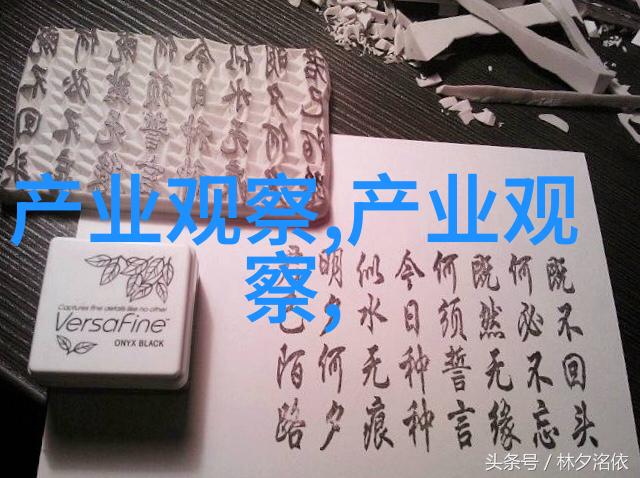 产业观察,产业观
察,
Captures fine details like no other
VersaFine
ONYX BLACK
既不回头
何必不忘
既然无缘
何须誓言
今日种种
似水无痕
明夕何夕
君已陌路
头条号 / 林夕洺依